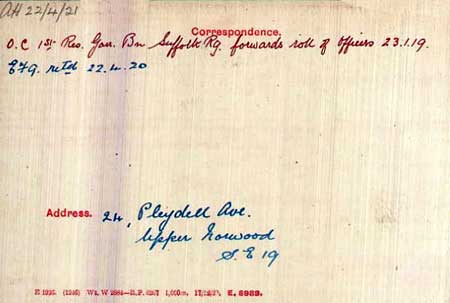 AH 22/4/21
Correspondence.
O.C 1st Res. Garr. Bn Suffolk Rg. forwards roll of Officers 23.1.19.
EFG. retd 22.4.20
Address. 24, Pleydell Ave.
Upper Norwood
S.E 19
E 1935. (1936) Wt. W 2584—R.P. 1,000m. E. 6983.